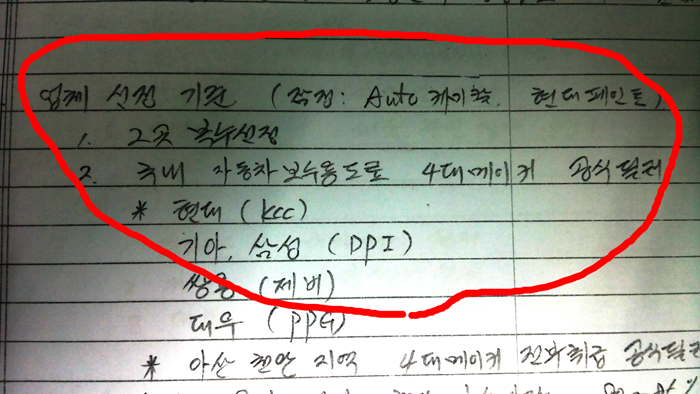 업체 선정 기준 (작정: Auto케이칼, 현대페인트)
1. 2곳 복수선정
2. 국내 자동차보수용도료 4대메이커 공식딜러
* 현대 (KCC)
기아, 삼성 (DPI)
쌍용 (제비)
대우 (PPG)
* 아산 천안 지역 4대메이커 전화취급 공식딜러